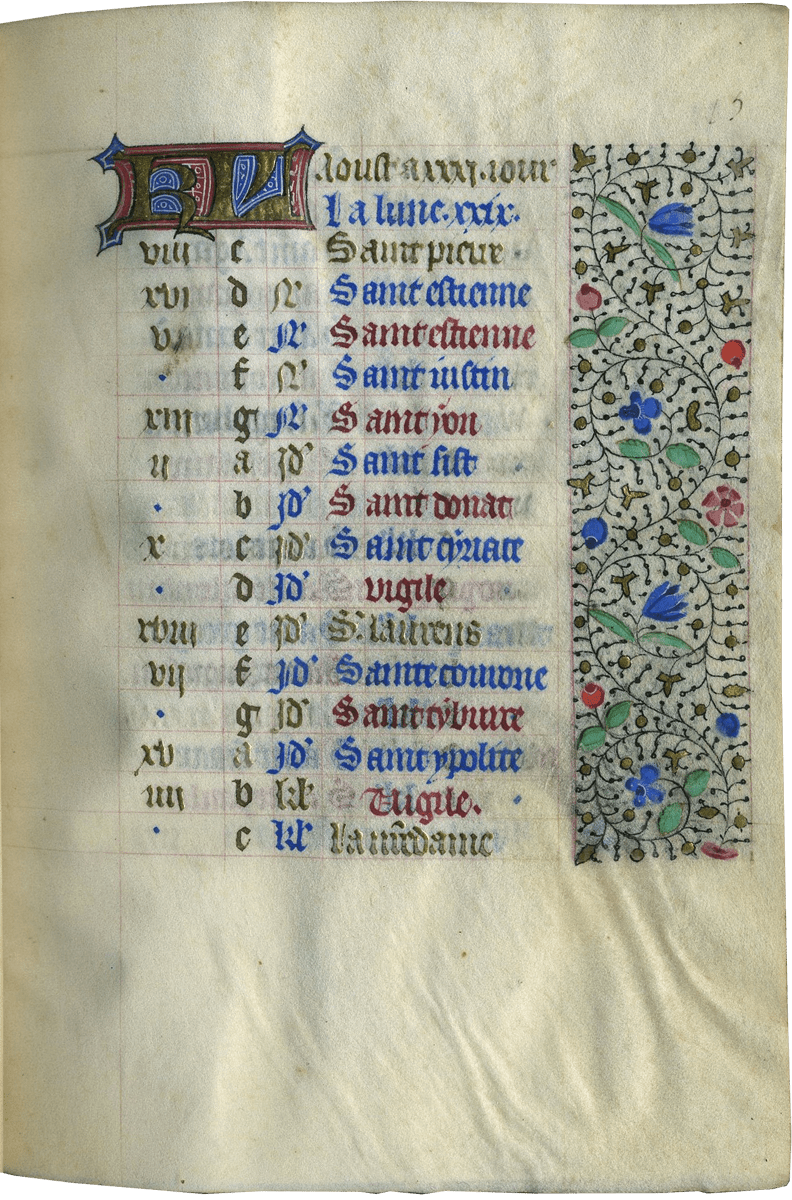 KL Aoust a xxxj. iour
La lune. xxix.
viij c Saint pierre
xvi d N Saint estienne
v e N Saint estienne
f N Saint iustin
xiij g N Saint yon
ij a jd' Saint sist
b jd' Saint donat
x c jd' Saint cyriace
d jd' vigile
xviij e jd' S. laurens
vij f jd' Sainte couronne
g jd' Saint tyburce
xv a jd' Saint ypolite
iiij b kl' Vigile.
c kl' La nr̄edame